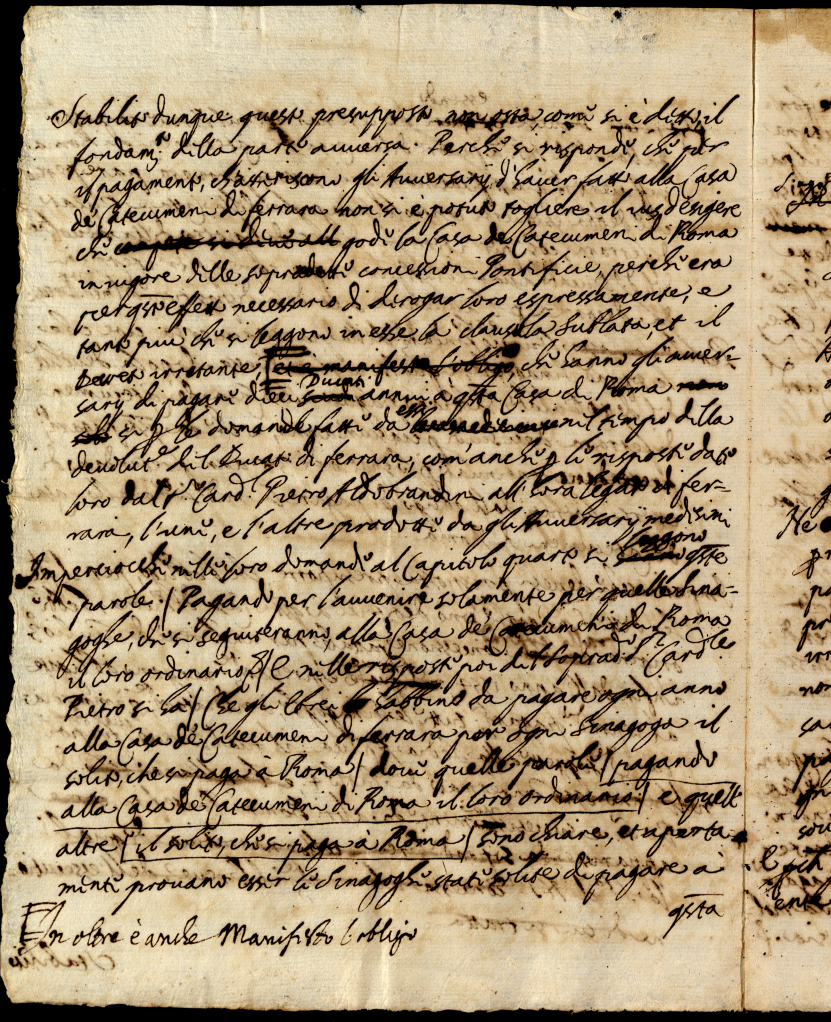 Stabilito dunque questo presupposto non osta, come si è detto, il
fondam.to della parte auuersa. Perche si risponde, che per
il pagamento, ch'asseriscono gli Auuersarij d'hauer fatto alla Casa
de Catecumeni di ferrara non si è potuto togliere il ius d'esigere
che gode la Casa de Catecumeni di Roma
in uigore delle sopradette concessioni Pontificie, perche era
per qsto effetto necessario di derogar loro espressamente, e
tanto più che si leggono in esse la clausula sublata, et il
Decreto irritante [et è manifesto l'obligo, che hanno gli auuer-
sarij di pagare dieci Ducati annui à qsta Casa di Roma non
solo si p le domande fatte da essi nel tempo della
deuolut.e del Ducat. di ferrara, com'anche p le risposte date
loro dal S.r Card. Pietro Aldobrandini all'hora legato di fer-
rara, l'une, e l'altre prodotte da gli Auuersarij medesimi
Imperciocche nelle loro domande al Capitolo quarto si leggono qste
parole / Pagando per l'auuenire solamente per quelle sina-
goghe, che si seguiteranno, alla Casa de Catecumeni di Roma
il loro ordinario / E nelle risposte poi del sopradº S.r Card.le
Pietro si ha / Che gli Ebrei habbino da pagare ogni anno
alla Casa de Catecumeni di ferrara per ogni Sinagoga il
solito, che si paga à Roma / doue quelle parole / pagando
alla Casa de Catecumeni di Roma il loro ordinario / e quell'
altre / il solito, che si paga à Roma / sono chiare, et aperta-
mente prouano esser le Sinagoghe state solite di pagare à
qsta
In oltre è anche Manifesto l'obligo